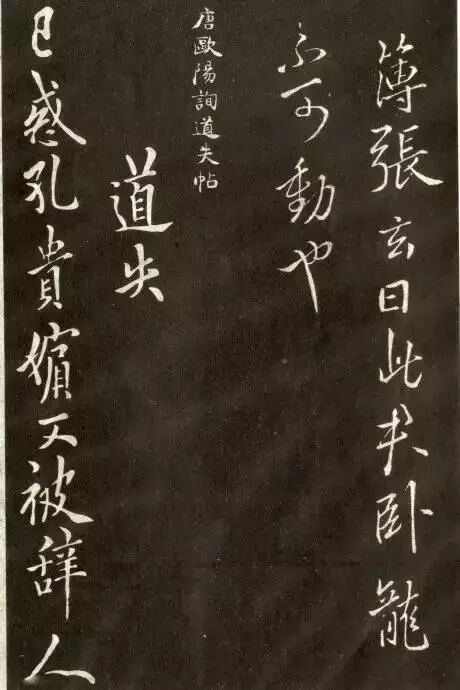 簿張玄曰此君卧龍
不可動也
唐歐陽詢道失帖
道失
已惑孔貴嬪又被辞人